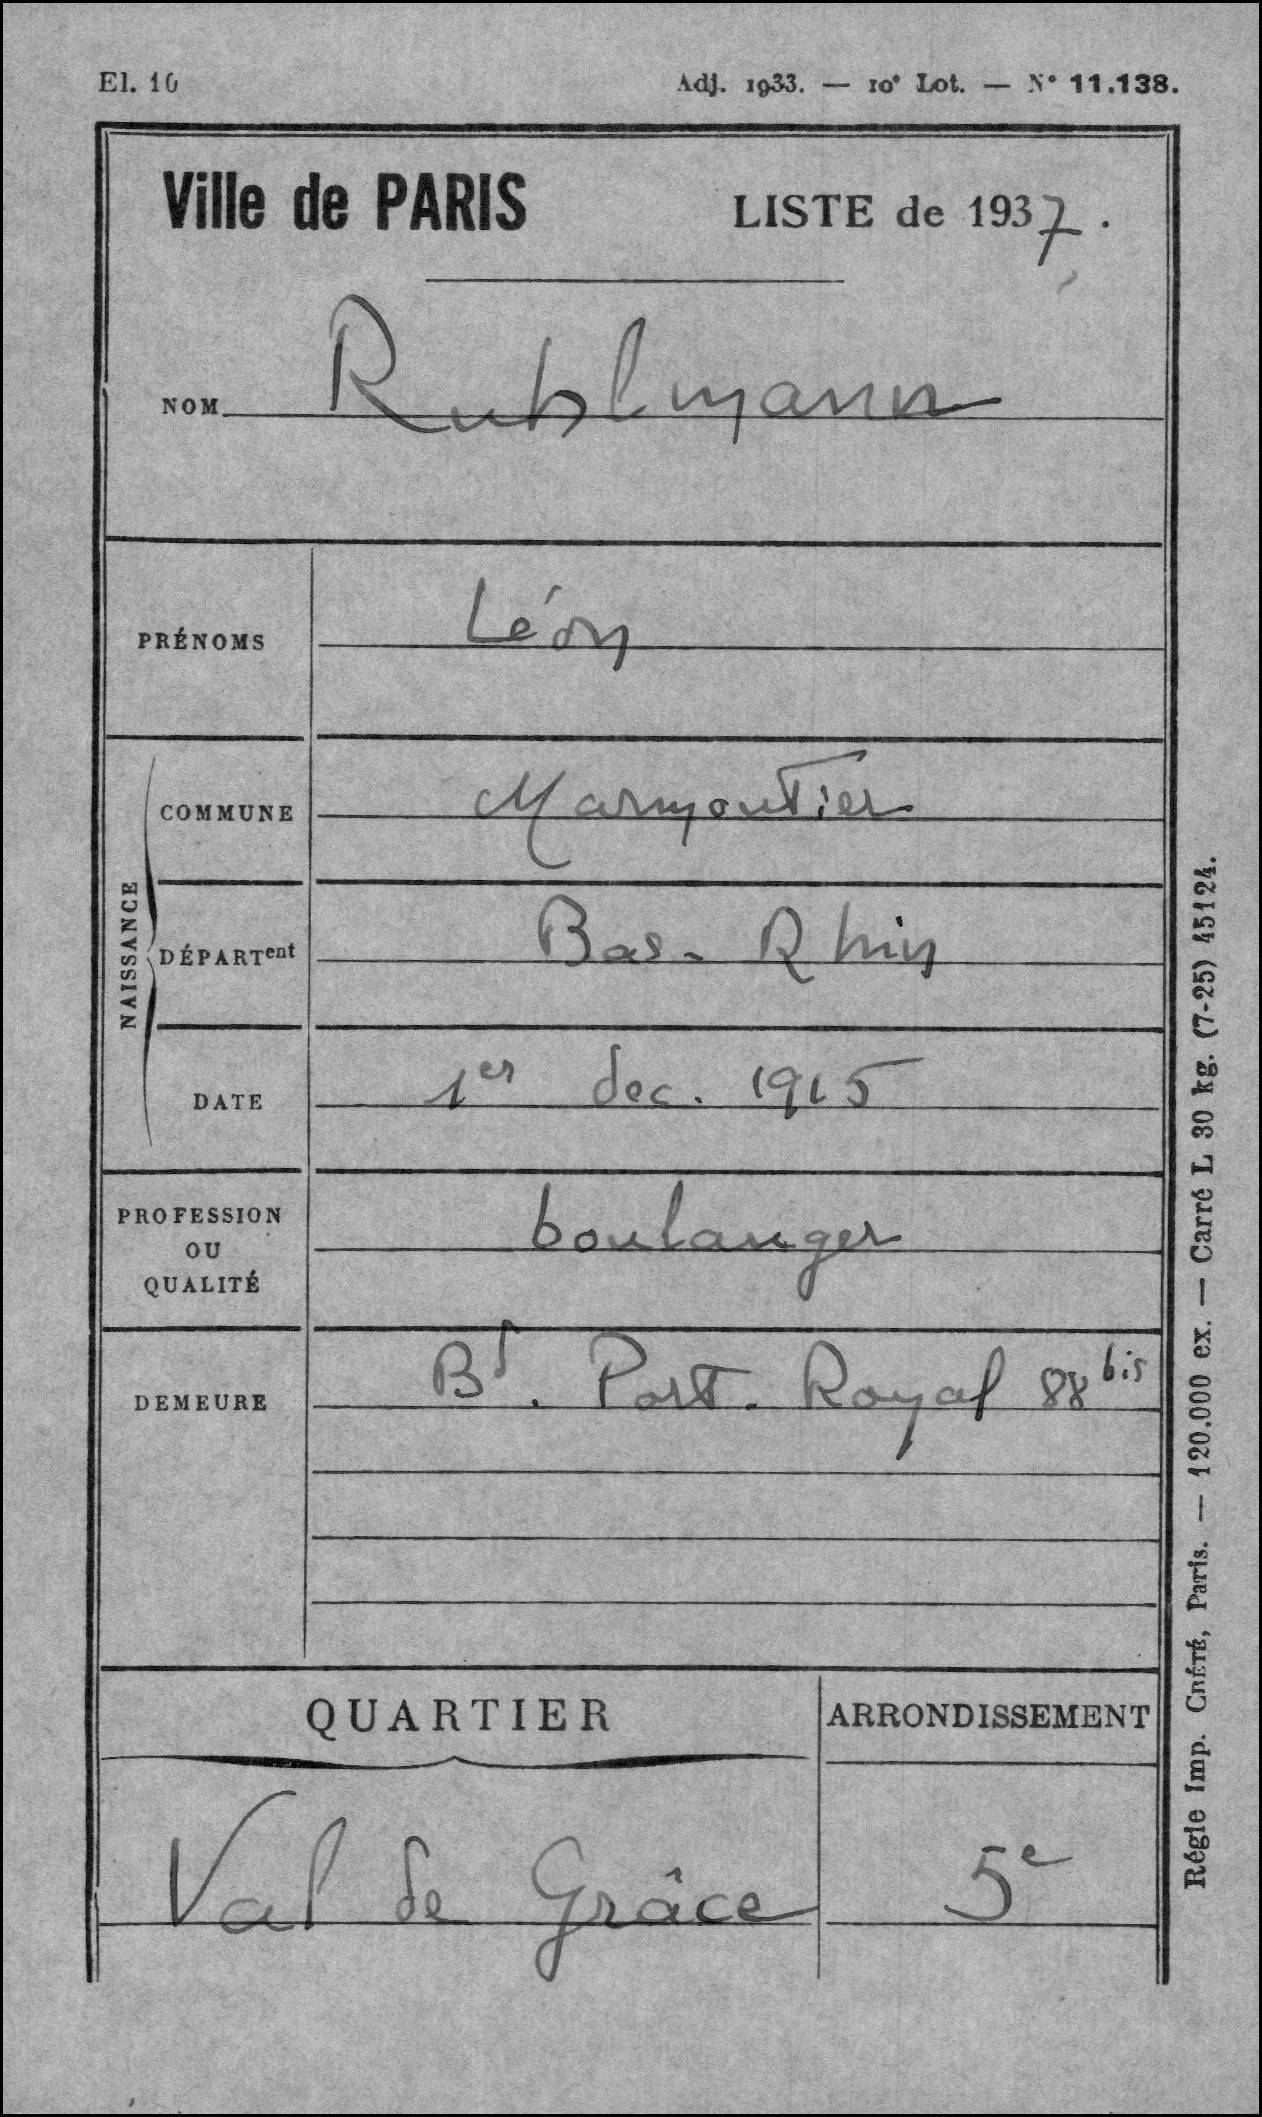 El. 10
Adj. 1933. — 10e Lot. — N° 11.138.
Ville de PARIS
LISTE de 1937.
NOM Ruhlmann
PRÉNOMS Léon
NAISSANCE
COMMUNE Marmoutier
DÉPARTent Bas-Rhin
DATE 1er dec. 1915
PROFESSION
OU
QUALITÉ
boulanger
DEMEURE Bd. Port-Royal 88 bis
QUARTIER
ARRONDISSEMENT
Val de Grâce
5e
Régie Imp. CRÉTÉ, Paris. — 120.000 ex. — Carré L 30 kg. (7-25) 45124.